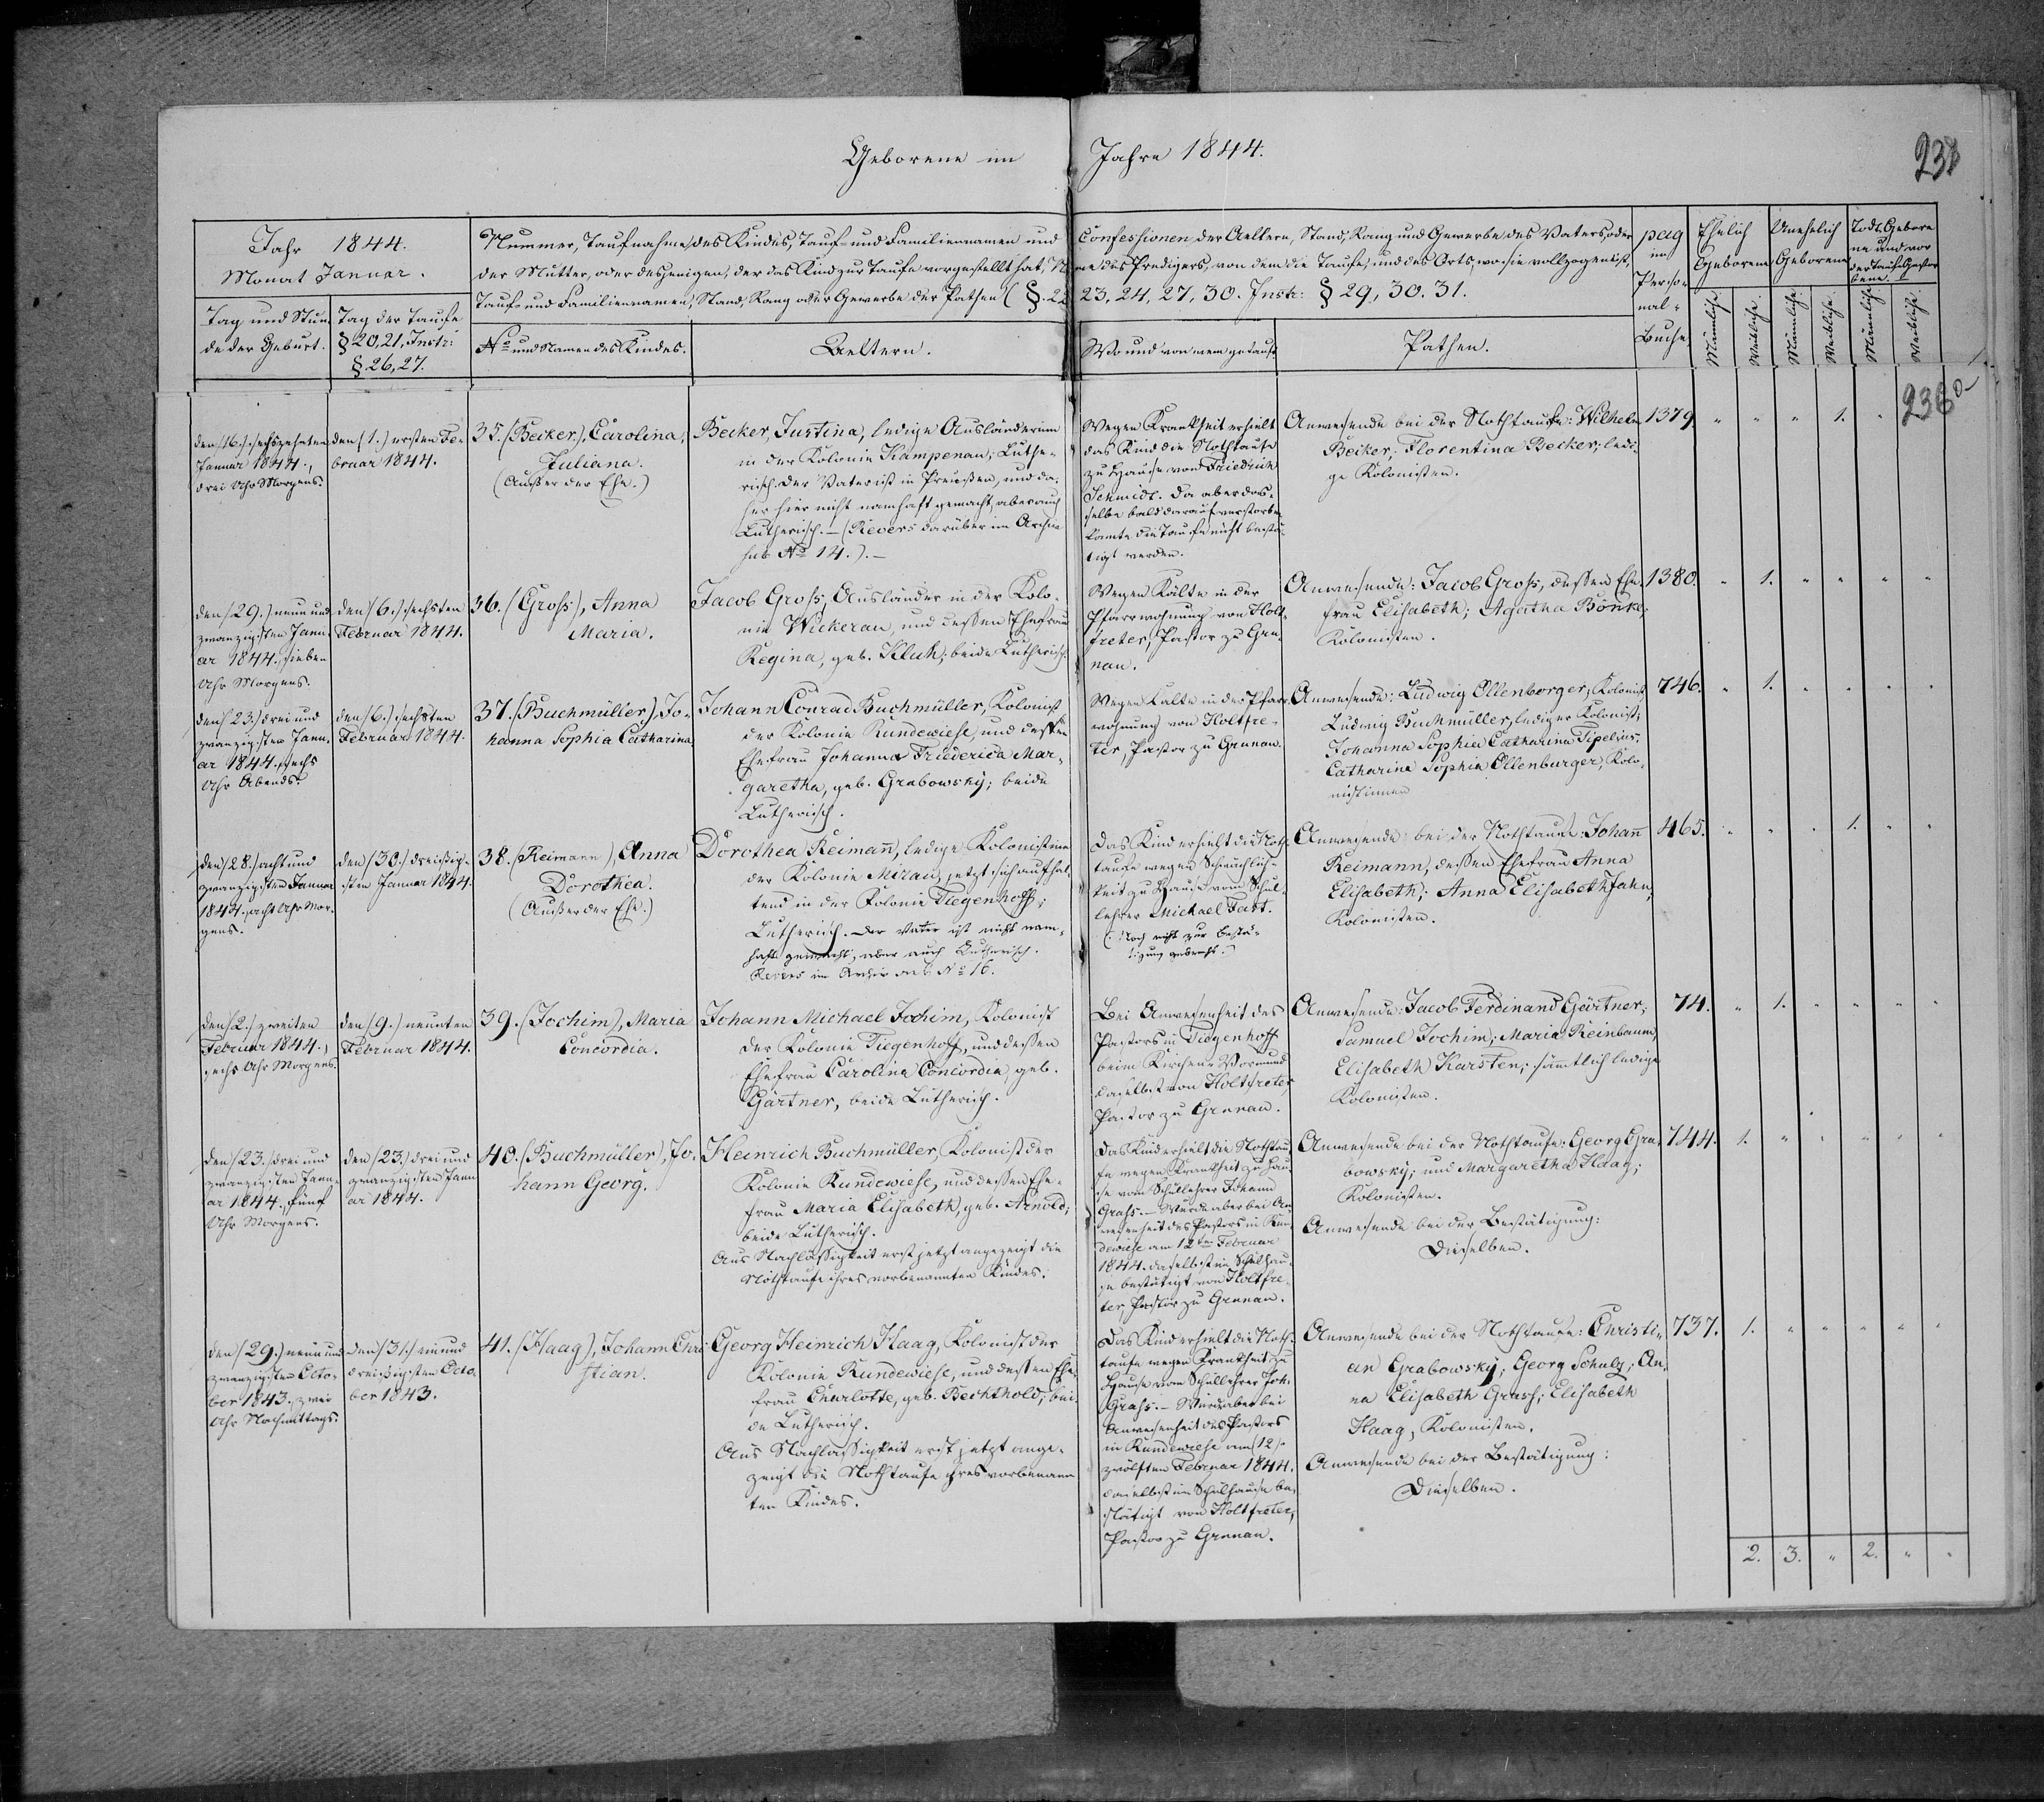 Geborene im Jahre 1844.
238
Jahr 1844.
Monat Januar.
Nummer, Taufnahme des Kindes, Tauf- und Familiennamen und Confessionen der Aeltern, Stand, Rang und Gewerbe des Vaters, oder
der Mutter, oder desjenigen, der das Kind zur Taufe vorgestellt hat, des Predigers, von dem die Taufe, und des Orts, wo sie vollzogen ist,
Tauf und Familiennamen, Stand, Rang oder Gewerbe der Pathen (§. 22 23, 24, 27, 30. Instr: § 29, 30. 31.
pag
im
Perso-
nal-
Buche
Ehelich
Geborene
Unehelich
Geborene
Todt Gebore
ne und vor
der Taufe Gestor
bene.
Tag und Stun
de der Geburt.
Tag der Taufe
§ 20, 21, Instr:
§ 26, 27.
No und Namen des Kindes.
Aeltern.
Wo und von wem getauft
Pathen.
Männliche.
Weibliche.
Männliche.
Weibliche.
Männliche.
Weibliche.
238
den (16.) sechszehnten
Januar 1844.,
drei Uhr Morgens.
den (1.) ersten Fe-
bruar 1844.
35. (Becker), Carolina,
Juliana.
(Außer der Ehe.)
Becker, Justina, ledige Ausländerinn
in der Kolonie Kampenau; Luthe-
risch. Der Vater ist in Preussen, und da-
her hier nicht namhaft gemacht, aber auch
Lutherisch. – (Revers darüber im Archiv
sub No 14.). –
Wegen Krankheit erhielt
das Kind die Nothtaufe
zu Hause von Friedrich
Schmidt. Da aber das-
selbe bald darauf verstorben
konnte die Taufe nicht bestä-
tigt werden.
Anwesende bei der Nothtaufe: Wilhelm
Becker; Florentina Becker; ledi-
ge Kolonisten.
1379 " " " 1. "
den (29.) neun und
zwanzigsten Janu-
ar 1844., sieben
Uhr Morgens.
den (6.) sechsten
Februar 1844.
36. (Gross), Anna
Maria.
Jacob Gross, Ausländer in der Kolo-
nie Wickerau, und dessen Ehefrau
Regina, geb. Kluk; beide Lutherisch.
Wegen Kälte in der
Pfarrwohnung von Holt-
freter, Pastor zu Gru-
nau.
Anwesende: Jacob Gross, dessen Ehe-
frau Elisabeth; Agatha Bönke;
Kolonisten.
1380. " 1. " " " "
den (23.) drei und
zwanzigsten Janu-
ar 1844., sechs
Uhr Abends.
den (6.) sechsten
Februar 1844.
37. (Buchmüller), Jo-
hanna Sophia Catharina
Johann Conrad Buchmüller, Kolonist
der Kolonie Rundewiese, und dessen
Ehefrau Johanna Friederica Mar-
garetha, geb. Grabowsky; beide
Lutherisch.
Wegen Kälte in der Pfarr
wohnung von Holtfre-
ter, Pastor zu Grunau.
Anwesende: Ludwig Ollenborger, Kolonist
Ludwig Buchmüller, lediger Kolonist;
Johanna Sophia Catharina Tipelius;
Catharina Sophia Ollenburger, Kolo-
nistinnen
746. " 1. " " " "
den (28.) acht und
zwanzigsten Januar
1844., acht Uhr Mor-
gens.
den (30.) dreißig-
sten Januar 1844.
38. (Reimann), Anna
Dorothea.
(Außer der Ehe.)
Dorothea Reimann, ledige Kolonistinn
der Kolonie Mirau, jetzt sich aufhal-
tend in der Kolonie Tiegenhoff;
Lutherisch. Der Vater ist nicht nam-
haft gemacht, aber auch Lutherisch.
Revers im Archiv sub No 16.
Das Kind erhielt die Noth
taufe wegen Schwächlich-
keit zu Hause vom Schul-
lehrer Michael Fast.
(Noch nicht zur Bestä-
tigung gebracht.)
Anwesende bei der Nothtaufe: Johann
Reimann, dessen Ehefrau Anna
Elisabeth; Anna Elisabeth Jahn;
Kolonisten.
465. " " " 1. " "
den (2.) zweiten
Februar 1844.,
sechs Uhr Morgens.
den (9.) neunten
Februar 1844.
39. (Jochim), Maria
Concordia.
Johann Michael Jochim, Kolonist
der Kolonie Tiegenhoff, und dessen
Ehefrau Carolina Concordia, geb.
Gärtner, beide Lutherisch.
Bei Anwesenheit des
Pastors in Tiegenhoff
beim Kirchen-Vormund
daselbst von Holtfreter,
Pastor zu Grunau.
Anwesende: Jacob Ferdinand Gärtner;
Samuel Jochim; Maria Reinbaum;
Elisabeth Karsten; sämmtlich ledige
Kolonisten.
74. " 1. " " " "
den (23.) drei und
zwanzigsten Janu-
ar 1844., fünf
Uhr Morgens.
den (23.) drei und
zwanzigsten Janu
ar 1844.
40. (Buchmüller), Jo-
hann Georg.
Heinrich Buchmüller, Kolonist der
Kolonie Rundewiese, und dessen Ehe-
frau Maria Elisabeth, geb. Arnold;
beide Lutherisch.
Aus Nachlässigkeit erst jetzt angezeigt die
Nothtaufe ihres vorbenannten Kindes.
Das Kind erhielt die Nothtau
fe wegen Krankheit zu Hau-
se vom Schullehrer Johann
Grass. – Wurde aber bei An
wesenheit des Pastors in Run
dewiese am 12ten Februar
1844. daselbst im Schulhau-
se bestätigt von Holtfre-
ter, Pastor zu Grunau.
Anwesende bei der Nothtaufe: Georg Gra-
bowsky; und Margaretha Haag;
Kolonisten.
Anwesende bei der Bestätigung:
Dieselben.
744. 1. " " " " "
den (29.) neun und
zwanzigsten Octo-
ber 1843., zwei
Uhr Nachmittags.
den (31.) ein und
dreißigsten Octo-
ber 1843.
41. (Haag), Johann Chri-
stian.
Georg Heinrich Haag, Kolonist der
Kolonie Rundewiese, und dessen Ehe-
frau Charlotte, geb. Bechthold; bei-
de Lutherisch.
Aus Nachlässigkeit erst jetzt ange-
zeigt die Nothtaufe ihres vorbenann
ten Kindes.
Das Kind erhielt die Noth-
taufe wegen Krankheit zu
Hause vom Schullehrer Joh.
Grass. – Wurde aber bei
Anwesenheit des Pastors
in Rundewiese am (12.)
zwölften Februar 1844.
daselbst im Schulhause be-
stätigt von Holtfreter,
Pastor zu Grunau.
Anwesende bei der Nothtaufe: Christi-
an Grabowsky; Georg Schulz; An-
na Elisabeth Grass; Elisabeth
Haag, Kolonisten.
Anwesende bei der Bestätigung:
Dieselben.
737. 1. " " " " "
2. 3. " 2. " "